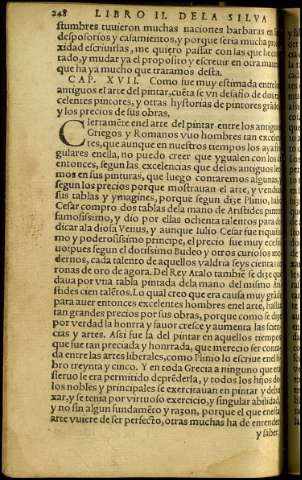 248 LIBRO II. DE LA SILVA
stumbres tuuieron muchas naciones barbaras en los
desposorios y casamientos, y porque seria mucha pro
xidad escriuirlas, me quiero passar con las que he con
tado, y mudar ya el proposito y escreuir en otra materia
que ha ya mucho que tratamos desta.
CAP. XVII. Como fue muy estimada entre los
antiguos el arte del pintar, cuẽta se vn desafio de dos ex
celentes pintores, y otras hystorias de pintores grãdes
y los precios de sus obras.
Cierramẽte enel arte del pintar entre los antiguos
Griegos y Romanos vuo hombres tan excelẽ
tes, que aunque en nuestros tiempos los ay
gulares enella, no puedo creer que ygualen con los de
entonces, segun las excelencias que delos antiguos lee
mos en sus pinturas, que luego contaremos algunas, y
segun los precios porque mostrauan el arte, y vendian
sus tablas y ymagines, porque segun dize Plinio, Iulio
Cesar compro dos tablas dela mano de Aristides pintor
famosissimo, y dio por ellas ochenta talentos para de
dicar ala diosa Venus, y aunque Iulio Cesar fue riquissi
mo y poderosissimo principe, el precio fue muy excessi
uo, pues segun el dotissimo Budeo y otros curiosos mo
dernos, cada talento de aquellos valdria seys cientas co
ronas de oro de agora. Del Rey Atalo tambiẽ se dize que
daua por vna tabla pintada dela mano del mismo Ari
stides cien talẽtos. Lo qual creo que era causa muy grãde
para auer entonces excelentes hombres enel arte, hallar
tan grandes precios por sus obras, porque como se dize
por verdad la honrra y fauor cresce y aumenta las scien
cias y artes. Assi fue la del pintar en aquellos tiempos
que fue tan preciada y honrrada, que merecio ser conta
da entre las artes liberales, como Plinio lo escriue enel li
bro treynta y cinco. Y en toda Grecia a ninguno que
sieruo le era permitido deprẽderla, y todos los hijos de
los nobles y principales se exercitauan en pintar y debu
xar, y se tenia por virtuoso exercicio, y singular abilidad,
y no sin algun fundamẽto y razon, porque el que enesta
arte vuiere de ser perfecto, otras muchas ha de entender
y saber